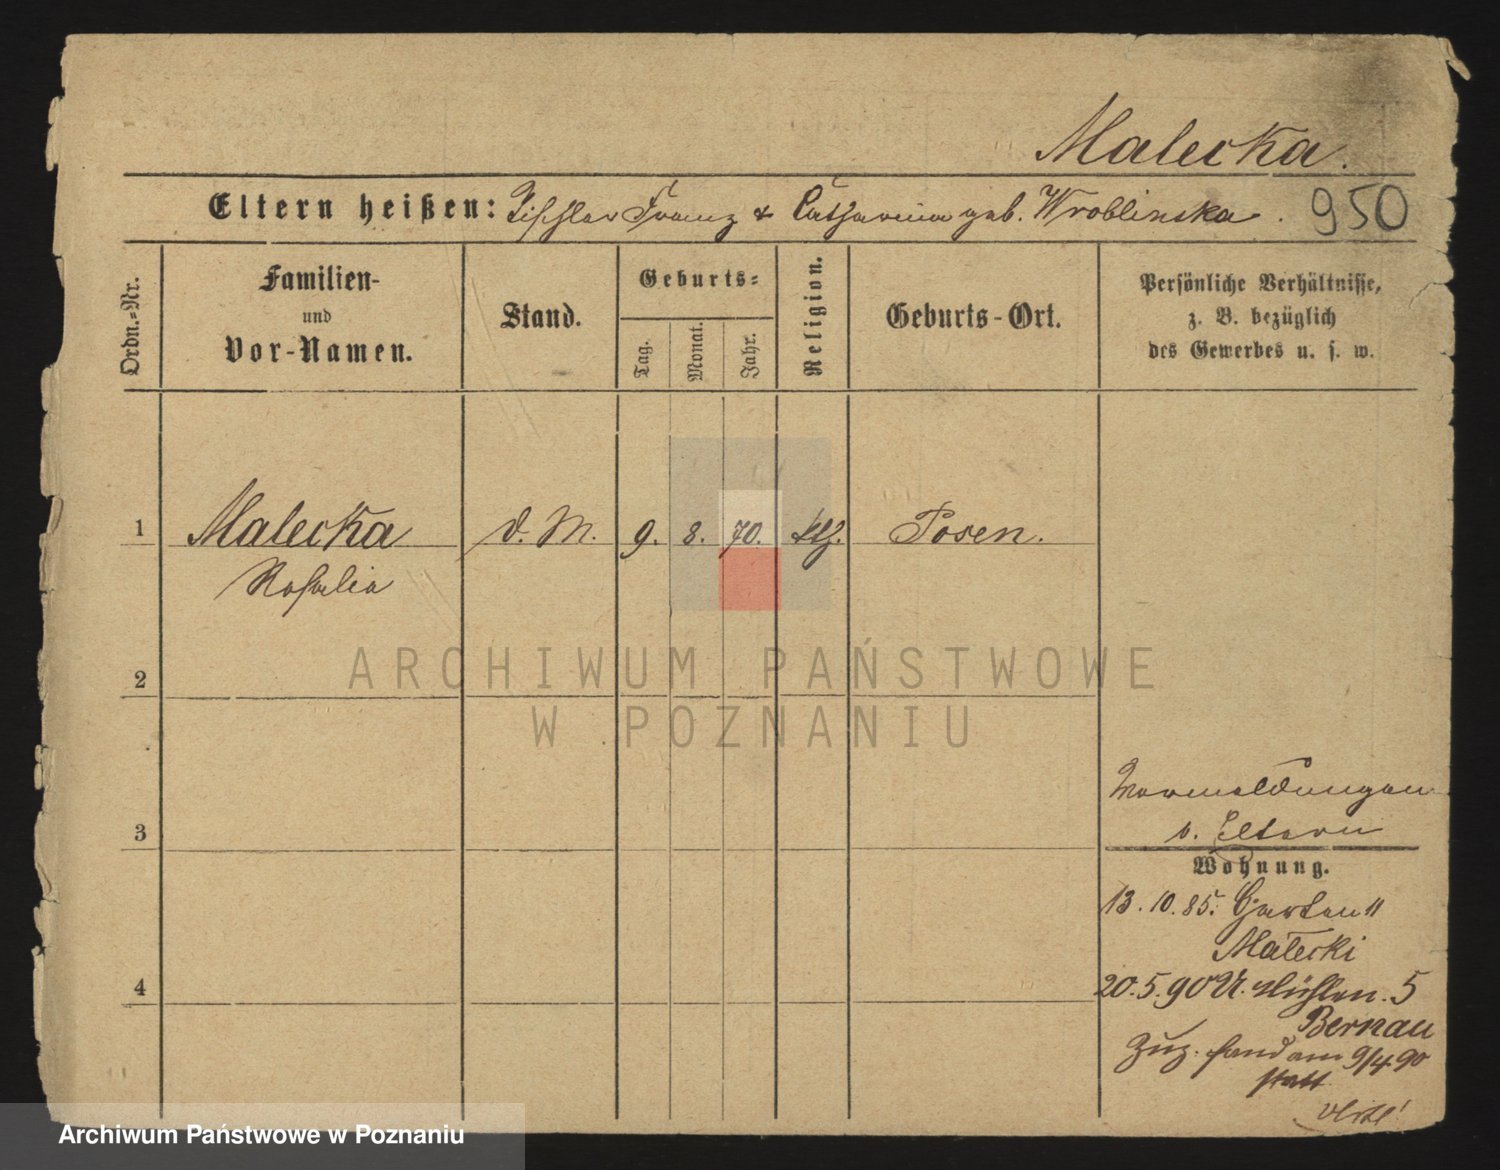 Malecka.
Eltern heißen: Tischler Franz & Catharina geb. Wroblinska. 950
Ordn.-Nr.
Familien-
und
Vor-Namen.
Stand.
Geburts-
Tag. Monat. Jahr.
Religion.
Geburts-Ort.
Persönliche Verhältnisse,
z. B. bezüglich
des Gewerbes u. s. w.
1 Malecka d. M. 9. 8. 70. kth. Posen.
Rosalia
2
3
4
Vormeldungen
b. Eltern
Wohnung.
13.10.85. Garten 11
Malecki
20.5.90 Mühlen. 5
Bernau
Zuz. fand am 9/4 90
statt
ARCHIWUM PAŃSTWOWE
W POZNANIU
Archiwum Państwowe w Poznaniu